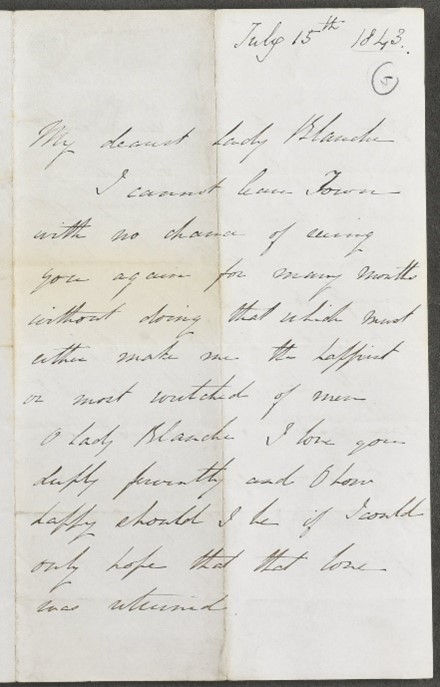 July 15th 1843.
5
My dearest Lady Blanche
I cannot leave Town
with no chance of seeing
you again for many months
without doing that which must
either make me the happiest
or most wretched of men
O Lady Blanche I love you
deeply fervently and O how
happy should I be if I could
only hope that that love
was returned